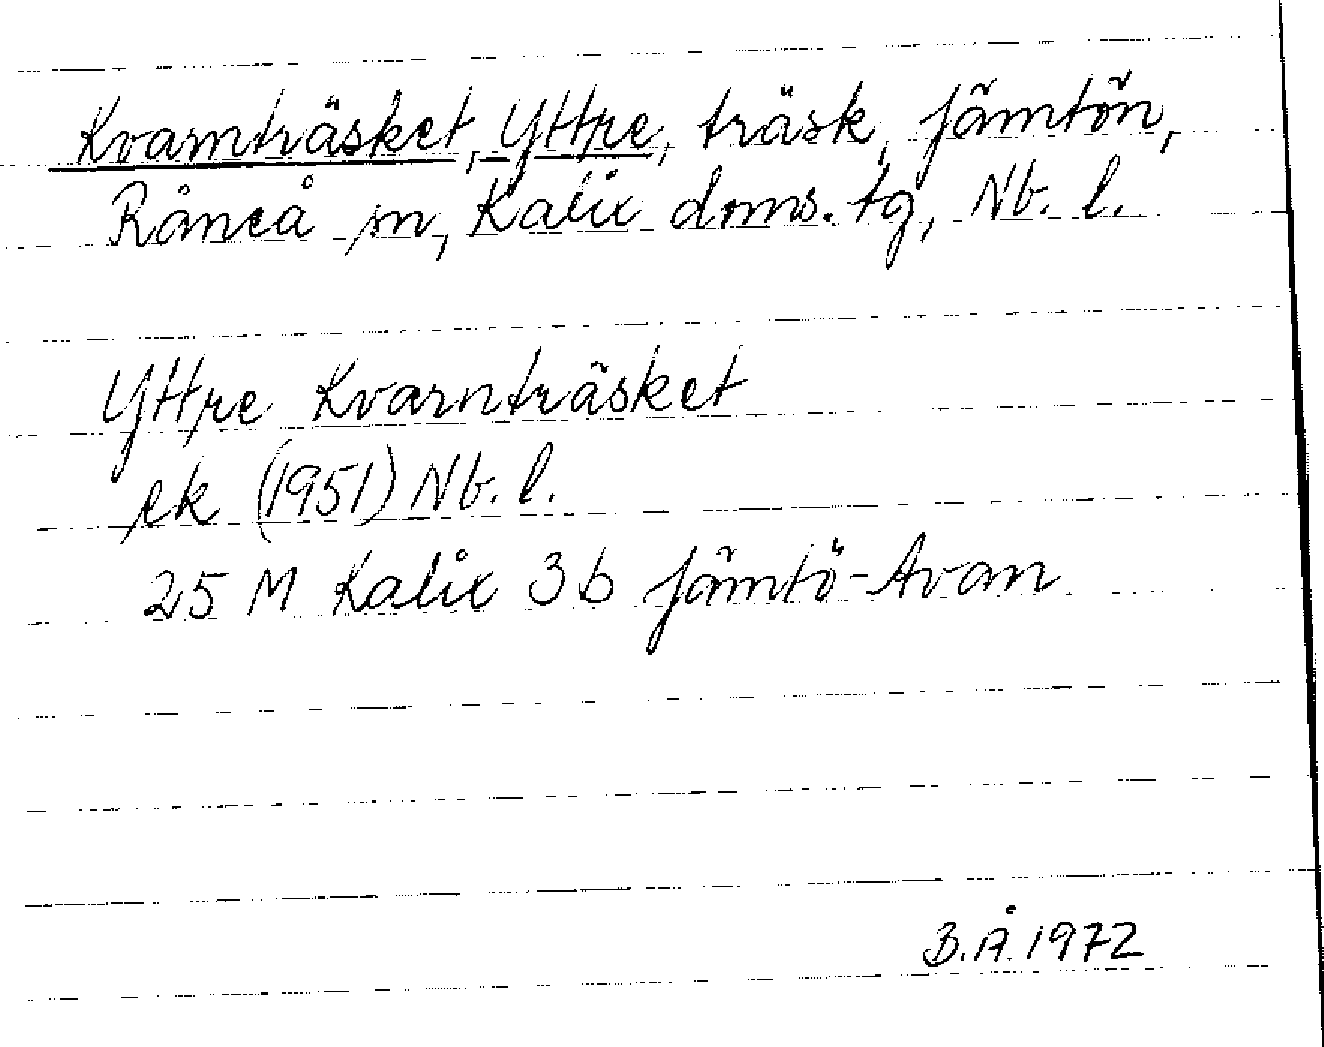 Kvarnträsket, Yttre, träsk, Jämtön,
Råneå sn, Kalix doms. tg, Nb. l.
Yttre Kvarnträsket
ek (1951) Nb. l.
25 M Kalix 3b Jämtö-Avan
B.Å. 1972